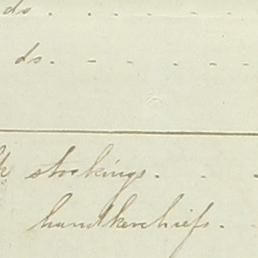 ds.
ds.
stockings.
handkerchiefs.